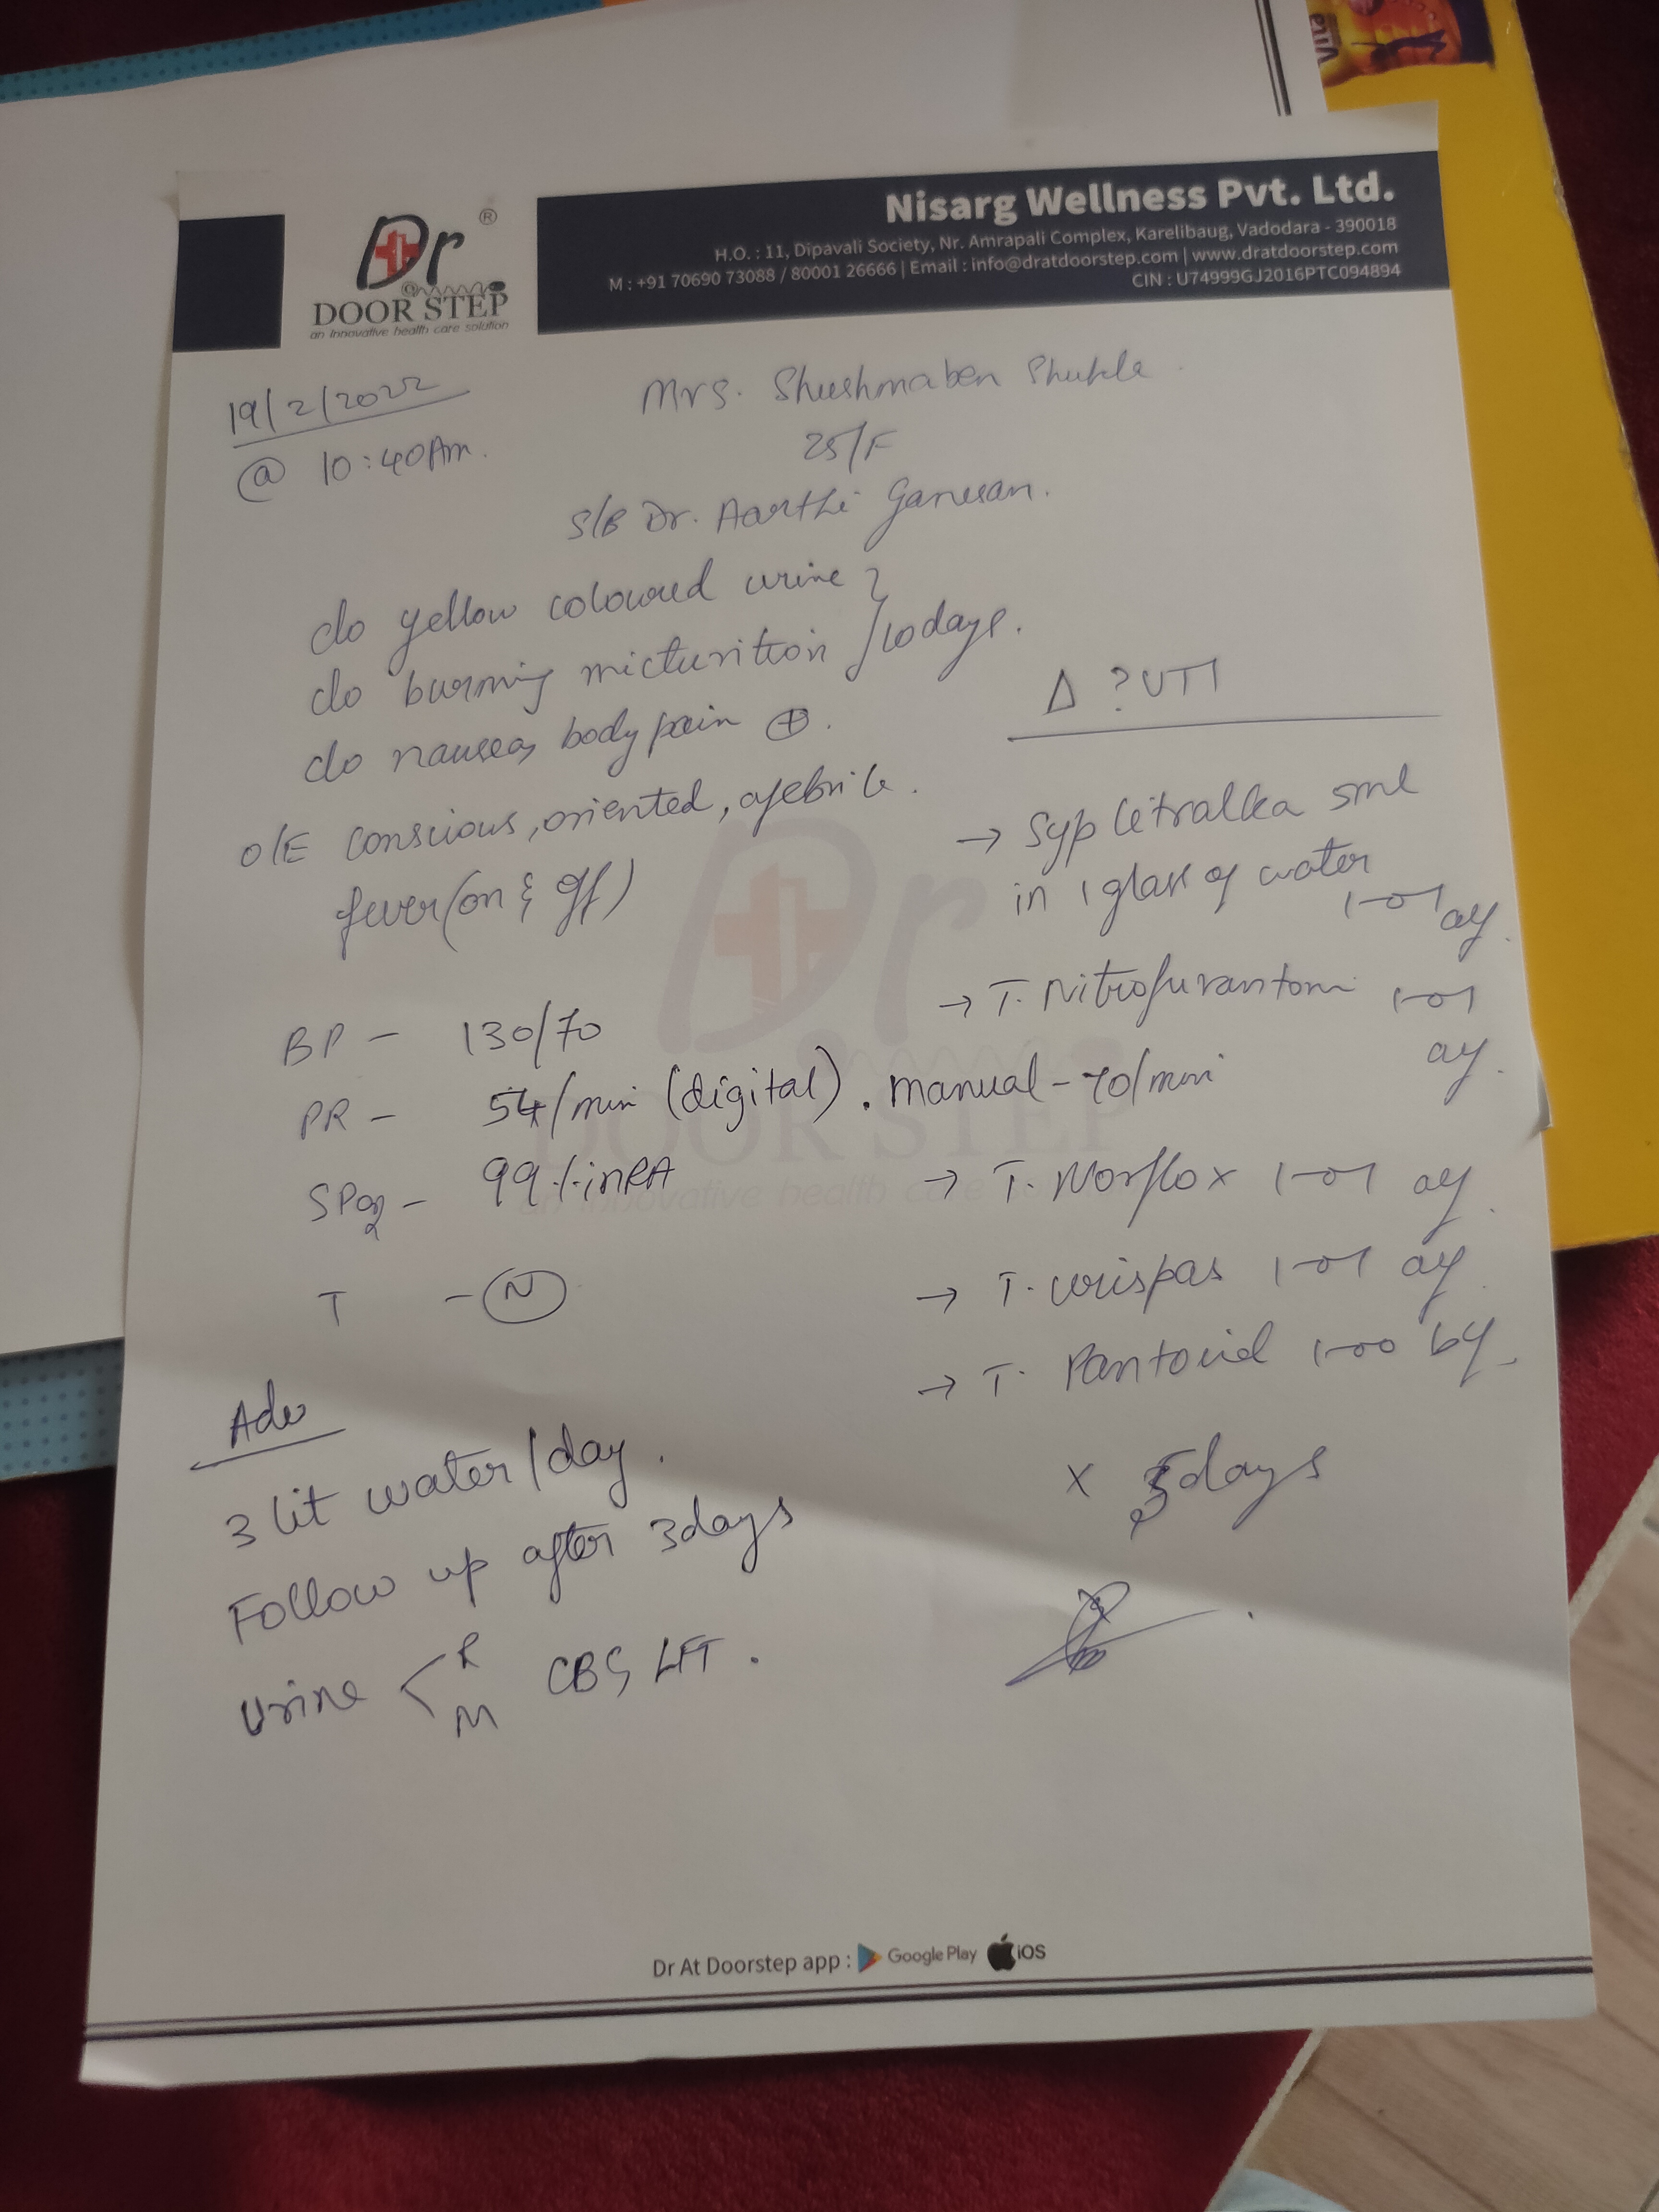 Dr ®
DOOR STEP
an innovative health care solution
Nisarg Wellness Pvt. Ltd.
H.O. : 11, Dipavali Society, Nr. Amrapali Complex, Karelibaug, Vadodara - 390018
M : +91 70690 73088 / 80001 26666 | Email : info@dratdoorstep.com | www.dratdoorstep.com
CIN : U74999GJ2016PTC094894
19/2/2022
@ 10:40Am.
Mrs. Shushmaben Shukla
25/F
S/B Dr. Aarthi Ganesan.
c/o yellow coloured urine
c/o burning micturition } 10days.
c/o nausea, body pain ⊕.
O/E conscious, oriented, afebrile.
fever (on & off)
BP - 130/70
PR - 54/min (digital). manual - 70/min
SPO2 - 99% in RA
T - N
Adv
3 lit water/day.
Follow up after 3days
Urine < R M CBC, LFT.
Δ ? UTI
→ Syp Citralka 5ml
in 1 glass of water
1-0-1 af.
→ T. Nitrofurantoin 1-0-1
af.
→ T. Norflox 1-0-1 af.
→ T. Urispas 1-0-1 af
→ T. Pantocid 1-0-0 bf.
x 5days
Dr At Doorstep app : Google Play iOS